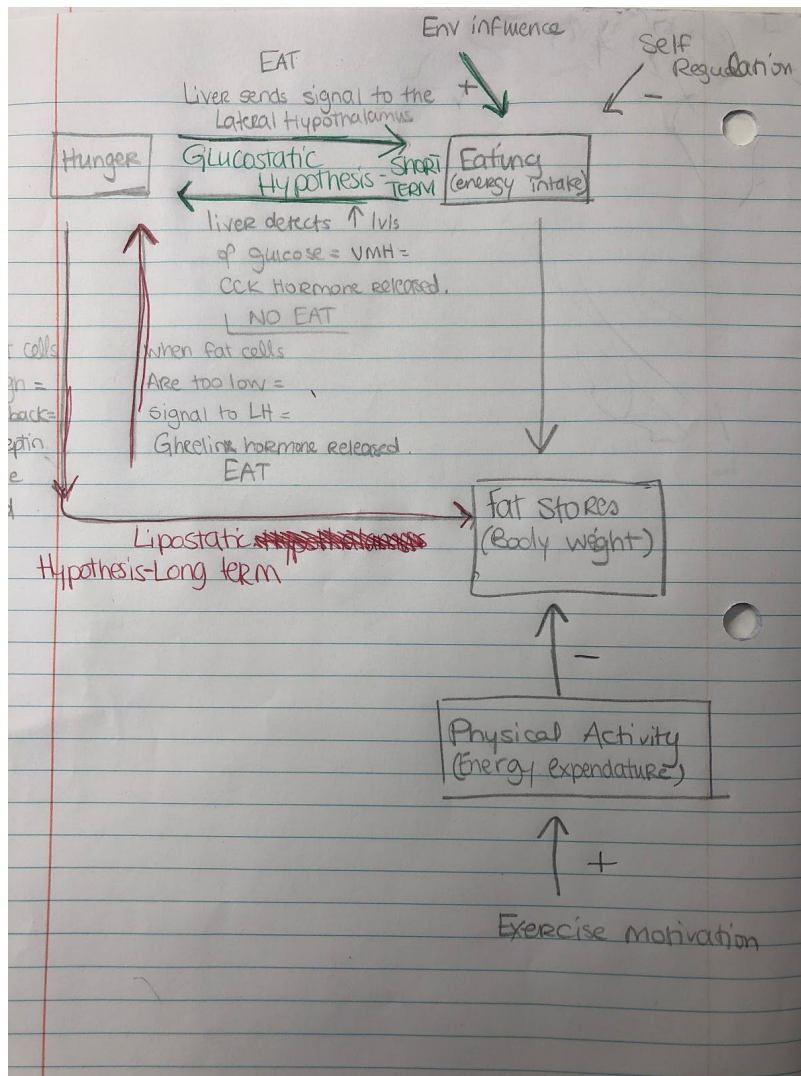 Env influence
Self
Regulation
EAT
Liver sends signal to the
Lateral Hypothalamus
+
-
Hunger
Glucostatic
Hypothesis - SHORT
TERM
Eating
(energy intake)
liver detects ↑ lvls
of glucose = VMH =
CCK Hormone Released.
NO EAT
cells
=
back=
when fat cells
ARE too low =
signal to LH =
Gheeline hormone released.
EAT
Fat Stores
(Body weight)
Lipostatic
Hypothesis-Long term
-
Physical Activity
(Energy expendature)
+
Exercise motivation